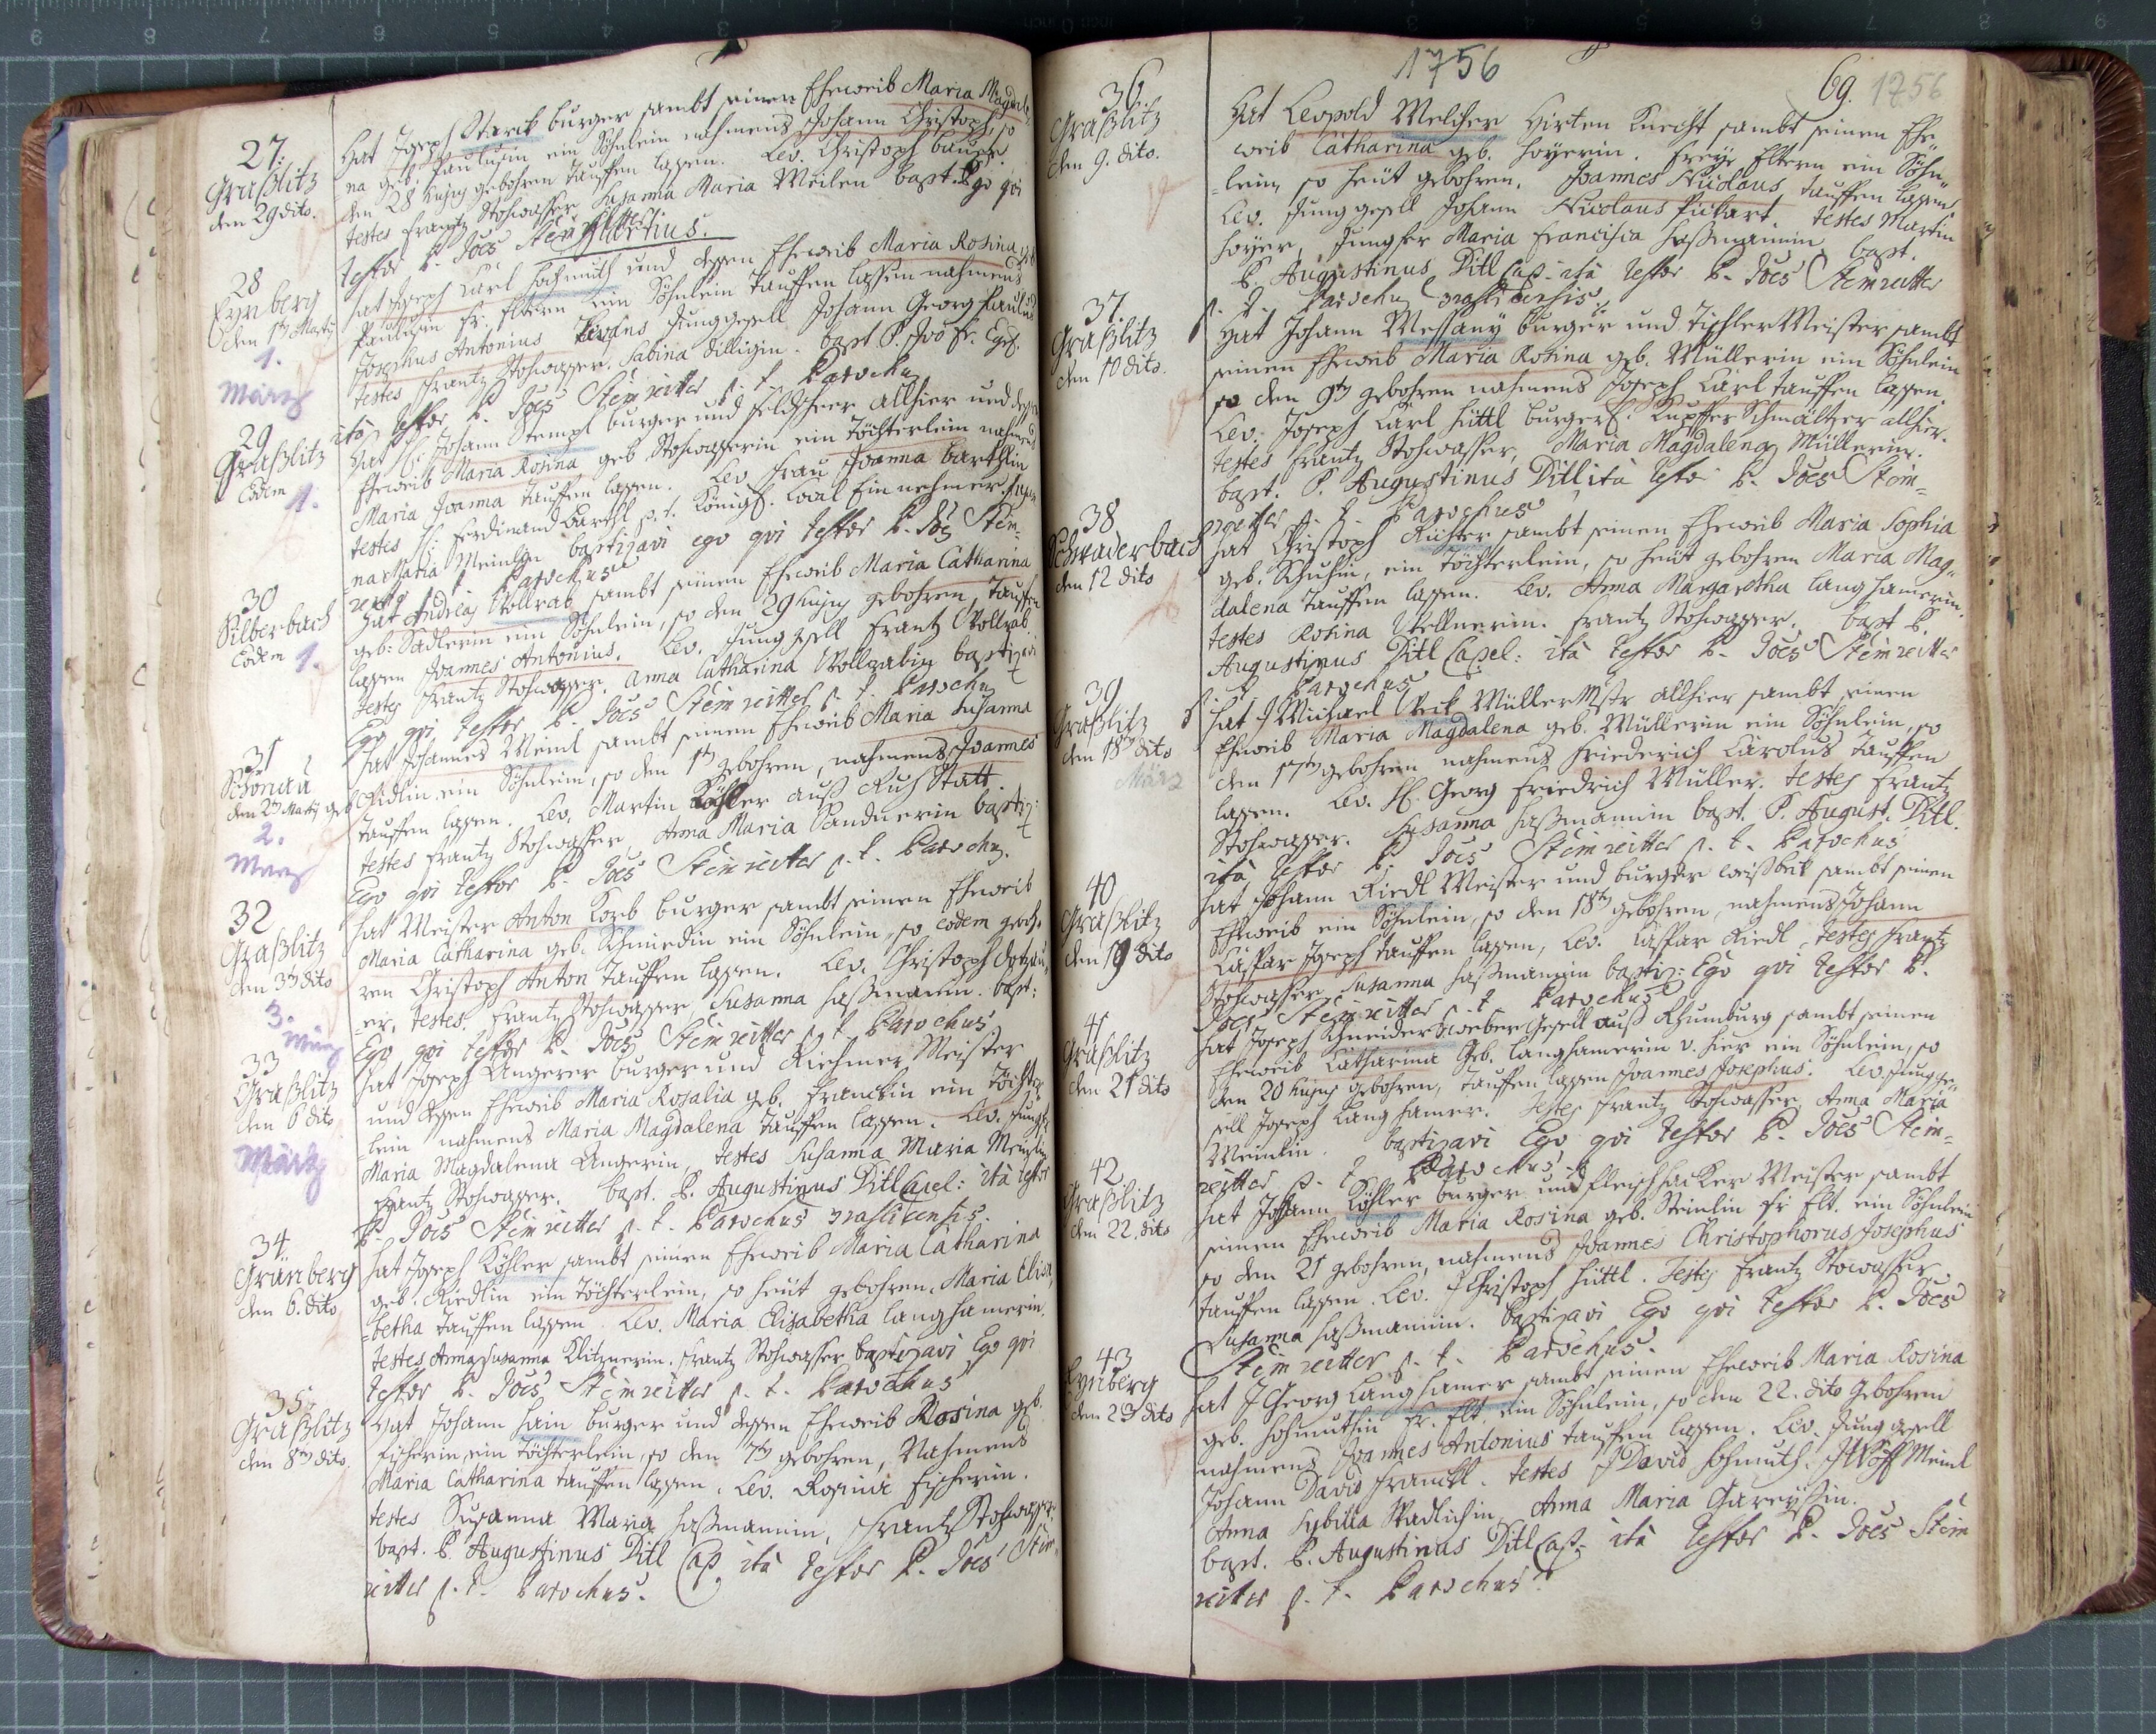 27.
Graßlitz
den 29 dito.
Hat Joseph Starck burger sambt seinen Eheweib Maria Magdale
na geb. Paulusin ein Söhnlein nahmens Johann Christoph, so
den 28 hujus gebohren tauffen lassen. Lev. Christoph bauer
testes Frantz Stohwasser, Susanna Maria Meilen bapt. Ego qvi
testor P. Joes Stem
Martius.
28
Eynberg
den 1ten Marty
1.
März
hat Joseph Carl Hochmuth und dessen Eheweib Maria Rosina
Paulusin fr. Eltern ein Söhnlein tauffen lassen nahmens
Josephus Antonius Levans Junggesell Johann Georg Paulus
testes Frantz Stohwasser. Sabina Dilligin. bapt P.
ita testor P. Joes Stemreitter p. t. Parochus
29
Graßlitz
Eodem
1.
Hat H. Johann Stempl burger und Feldscheer allhier und dessen
Eheweib Maria Rosina geb Stohwasserin ein Töchterlein nahmens
Maria Joanna tauffen lassen. Lev Frau Joanna barthlin
testes H. Ferdinand Barthl p. t. Königl. Einnehmer. Susan
na Maria Meinlin baptizavi ego qvi testor P. Joes Stem-
reitter p. t. Parochus
30
Silberbach
Eodem
1.
hat Andreas Vollrab sambt seinen Eheweib Maria Catharina
geb: Sadlerin ein Söhnlein, so den 29 hujus gebohren, tauffen
lassen Joannes Antonius. Lev. Jung gsell Frantz Vollrab
testes Frantz Stohwasser. Anna Catharina Vollrabin baptizavi
Ego qvi testor P. Joes Stemreitter p. t. Parochus
31
Schönau
den 2ten Marty
2.
März
hat Johannes Meinl sambt seinen Eheweib Maria Susanna
geb Ridlin ein Söhnlein, so den 1ten gebohren, nahmens Joannes
tauffen lassen. Lev. Martin Köhler auß Ruh Statt
testes Frantz Stohwasser Anna Maria Sandnerin baptiz:
Ego qvi testor P. Joes Stemreitter p. t. Parochus.
32
Graßlitz
den 3ten dito
3.
März
hat Meister Anton Korb burger sambt seinen Eheweib
Maria Catharina geb. Schmiedin ein Söhnlein, so eodem geboh-
ren Christoph Anton tauffen lassen. Lev. Christoph Dotzau-
er, testes. Frantz Stohwasser, Susanna Haßmanin. bapt:
Ego qvi testor P. Joes Stemreitter p. t. Parochus
33
Graßlitz
den 6 dito
März
hat Joseph Angerer burger und Riehmer Meister
und dessen Eheweib Maria Rosalia geb. Franckin ein Töchter
lein nahmens Maria Magdalena tauffen lassen. Lev. Jungfr
Maria Magdalena Angerin, testes Susanna Maria Meinlin
Frantz Stohwasser. bapt. P. Augustinus Ditl Capel: ita testor
P. Joes Stemreitter p. t. Parochus Grasslicensis.
34.
Grünberg
den 6. dito
hat Joseph Köhler sambt seinen Eheweib Maria Catharina
geb. Riedlin ein Töchterlein, so heüt gebohren, Maria Elisa,
betha tauffen lassen. Lev. Maria Elisabetha Langhamerin.
testes Anna Susanna Klitznerin. Frantz Stohwasser baptizavi Ego qvi
testor P. Joes Stemreitter p. t. Parochus
35.
Graßlitz
den 8ten dito.
Hat Johann Hain burger und dessen Eheweib Rosina geb.
Fischerin, ein Töchterlein, so den 7ten gebohren, Nahmens
Maria Catharina tauffen lassen, Lev. Rosina Fischerin.
testes Susanna Maria Haßmanin, Frantz Stohwasser
bapt. P. Augustinus Ditl Cap. ita testor P. Joes Stem-
reitter p. t. Parochus.
1756
69.
1756
36
Graßlitz
den 9. dito.
Hat Leopold Melcher Hirten Knecht sambt seinen Ehe-
weib Catharina geb. Hoyerin. Freye Eltern ein Söhn-
lein, so heüt gebohren. Joannes Nicolaus tauffen lassen
Lev. Jung gesell Johann Nicolaus Pickart. testes Martin
Hoyer, Jungfer Maria Francisca Haßmanin bapt.
P. Augustinus Ditl Cap. ita testor P. Joes Stemreitter
p. t. Parochus Graslicensis.
37.
Graßlitz
den 10 dito.
Hat Johann Messany burger und Tischler Meister sambt
seinen Eheweib Maria Rosina geb. Müllerin ein Söhnlein
so den 9ten gebohren nahmens Joseph Carl tauffen lassen.
Lev. Joseph Carl Hüttl burgerl. Kupffer Schmältzer allhier.
testes Frantz Stohwasser, Maria Magdalena Müllerin.
bapt. P. Augustinus Ditl ita testor P. Joes Stem-
reitter p. t. Parochus
38
Schwaderbach
den 12 dito
hat Christoph Richter sambt seinen Eheweib Maria Sophia
geb. Schuhin, ein Töchterlein, so heüt gebohren Maria Mag-
dalena tauffen lassen. Lev. Anna Margaretha Langhamerin.
testes Rosina Stellnerin. Frantz Stohwasser. bapt P.
Augustinus Ditl Capel: ita testor P. Joes Stemreitter
p. t. Parochus
39
Graßlitz
den 18ten dito
März
hat J Michael Veck Müller Mstr allhier sambt seinen
Eheweib Maria Magdalena geb. Müllerin ein Söhnlein, so
den 17ten gebohren nahmens Friederich Carolus tauffen
lassen. Lev. H. Georg Friedrich Müller. testes Frantz
Stohwasser. Susanna Haßmanin bapt. P. August. Ditl.
ita testor P. Joes Stemreitter p. t. Parochus
40
Graßlitz
den 19 dito
hat Johann Riedl Meister und burger weißbek sambt seinen
Eheweib ein Söhnlein, so den 18ten gebohren, nahmens Johann
Caspar Joseph tauffen lassen, Lev. Caspar Riedl, testes Frantz
Stohwasser Susanna Haßmanin baptiz: Ego qvi testor P.
Joes Stemreitter p. t. Parochus
41
Graßlitz
den 21 dito
hat Joseph Schneider Zweber Gesell auß Rhumburg sambt seinen
Eheweib Catharina Geb. Langhamerin v. hier ein Söhnlein, so
den 20 hujus gebohren, tauffen lassen Joannes Josephus. Lev. Jungge-
sell Joseph Langhamer. testes Frantz Stohwasser, Anna Maria
Meinlin. baptizavi Ego qvi testor P. Joes Stem-
reitter p. t. Parochus
42
Graßlitz
den 22. dito
hat Johann Köhler burger und Fleischhacker Meister sambt
seinen Eheweib Maria Rosina geb. Steinlin fr Elt. ein Söhnlein
so den 21 gebohren, nahmens Joannes Christophorus Josephus
tauffen lassen. Lev. J Christoph Hüttl. testes Frantz Stowasser
Susanna Haßmanin. baptizavi Ego qvi testor P. Joes
Stemreitter p. t. Parochus.
43
Eynberg
den 23 dito
hat J Georg Langhamer sambt seinen Eheweib Maria Rosina
geb. Hohmuthin fr. Elt. ein Söhnlein, so den 22. dito gebohren
nahmens Joannes Antonius tauffen lassen. Lev. Jung gesell
Johann David Franckl. testes J David Hohmuth. J Wolff Meinl
Anna Sybilla Stadlichin, Anna Maria Gareyssin.
bapt. P. Augustinus Ditl Cap. ita testor P. Joes Stem
reitter p. t. Parochus.